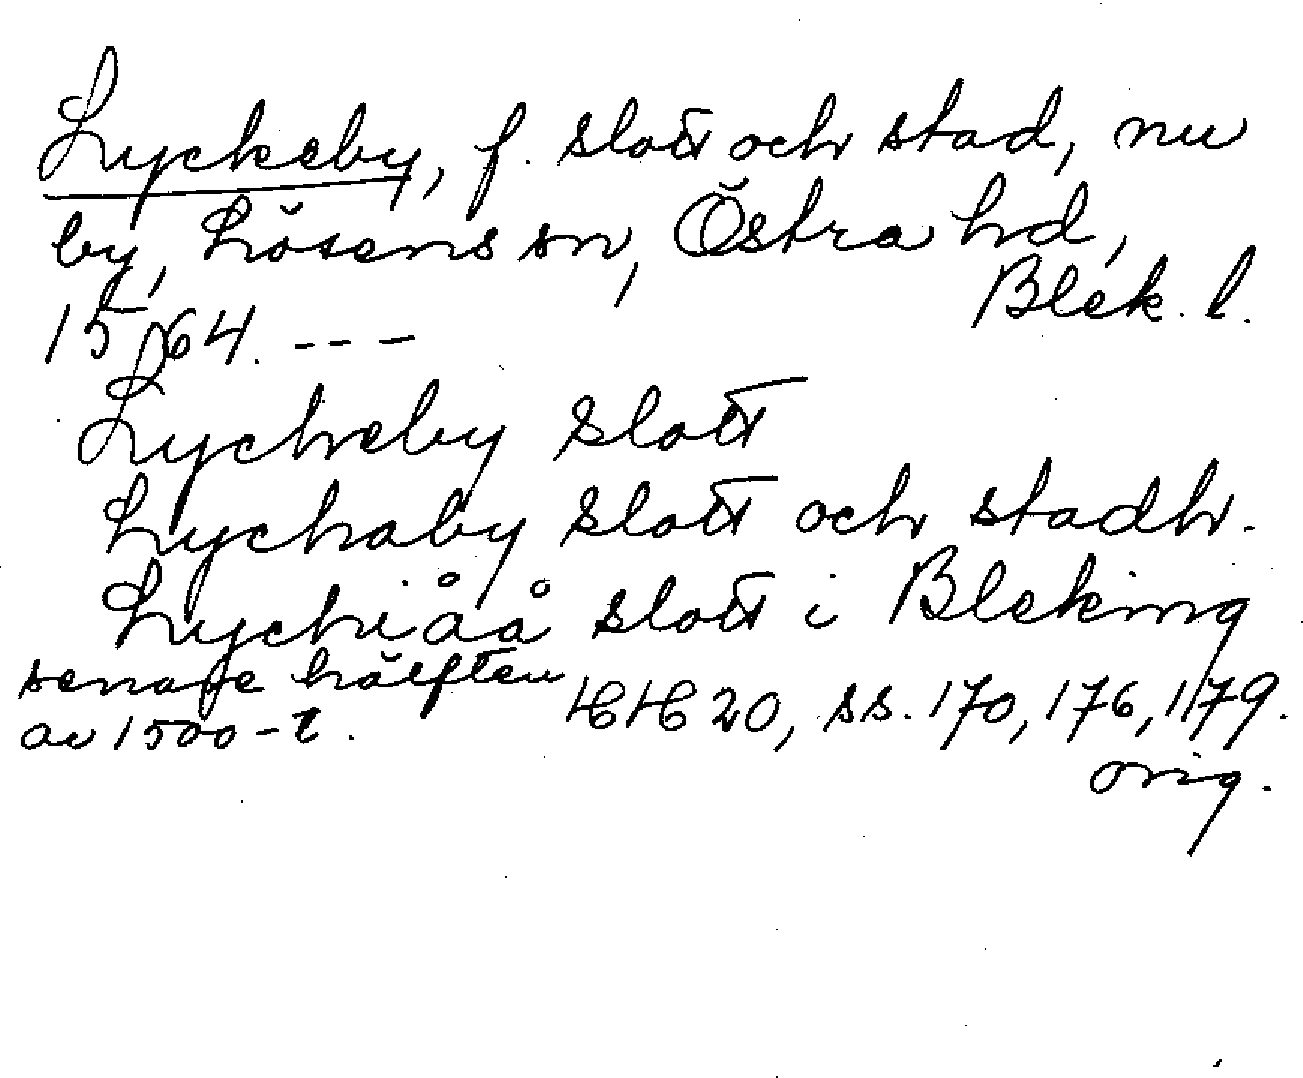 Lyckeby, f. slott och stad, nu
by, Lösens sn, Östra hd,
Blek. l.
1564. ---
Lycheby slott
Lychaby slott och stadh.
Lychiåå slott i Bleking
senare hälften
av 1500-t.
HH 20, ss. 170, 176, 179.
orig.